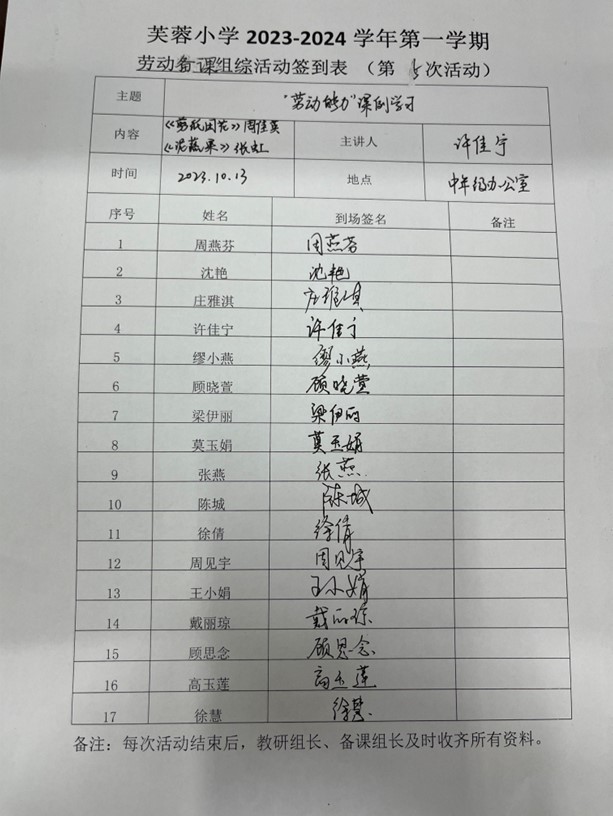 芙蓉小学 2023-2024 学年第一学期
劳动备课组综活动签到表 （第 5 次活动）
主题 "劳动能力"课例学习
内容 《剪纸团花》周佳英
《泥蔬果》张虹 主讲人 许佳宁
时间 2023.10.13 地点 中年级办公室
序号 姓名 到场签名 备注
1 周燕芬 周燕芬
2 沈艳 沈艳
3 庄雅淇 庄雅淇
4 许佳宁 许佳宁
5 缪小燕 缪小燕
6 顾晓萱 顾晓萱
7 梁伊丽 梁伊丽
8 莫玉娟 莫玉娟
9 张燕 张燕
10 陈城 陈城
11 徐倩 徐倩
12 周见宇 周见宇
13 王小娟 王小娟
14 戴丽琼 戴丽琼
15 顾思念 顾思念
16 高玉莲 高玉莲
17 徐慧 徐慧
备注：每次活动结束后，教研组长、备课组长及时收齐所有资料。